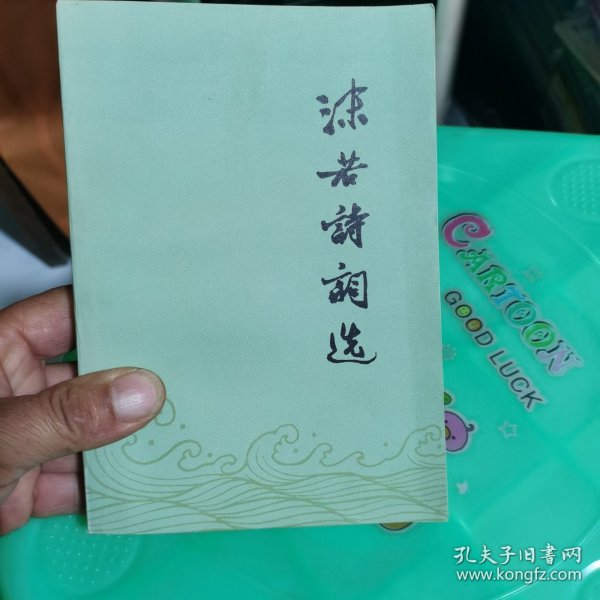 沫若詩詞选
CARTOON
GOOD LUCK
孔夫子旧书网
www.kongfz.com